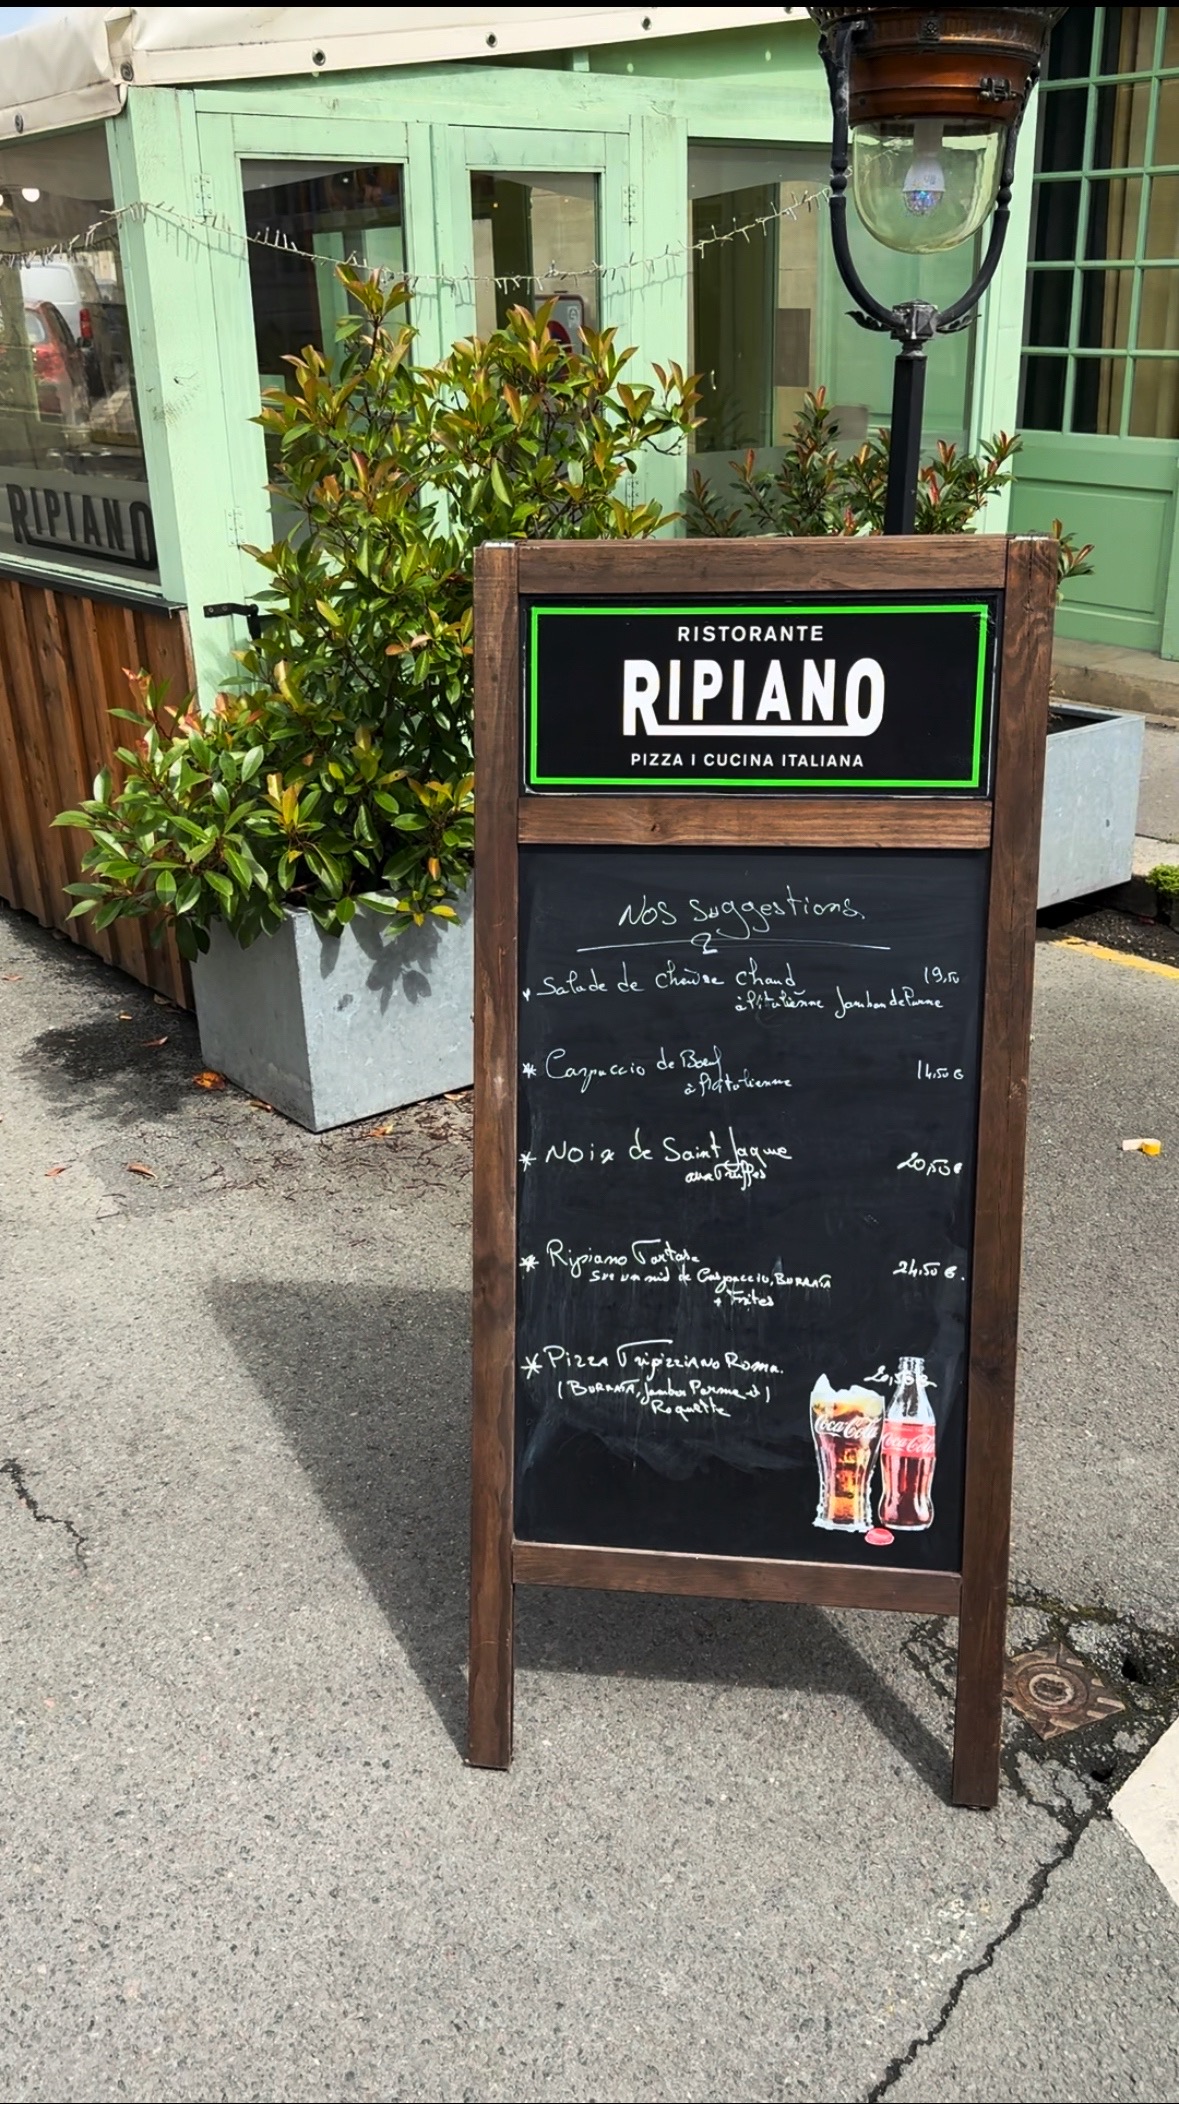 RIPIANO
RISTORANTE
RIPIANO
PIZZA | CUCINA ITALIANA
Nos suggestions.
Salade de chèvre chaud 19,50
à l'italienne Jambon de Parme
* Carpaccio de Bœuf 14,50 €
à l'italienne
* Noix de Saint Jaque 20,50 €
aux Truffes
* Ripiano Tartare 24,50 €.
sur un nid de Carpaccio, BURRATA
+ Frites
* PIZZA TripizziANO ROMA. 20,50 €
(BURRATA, Jambon Parme et)
Roquette
Coca-Cola
Coca-Cola